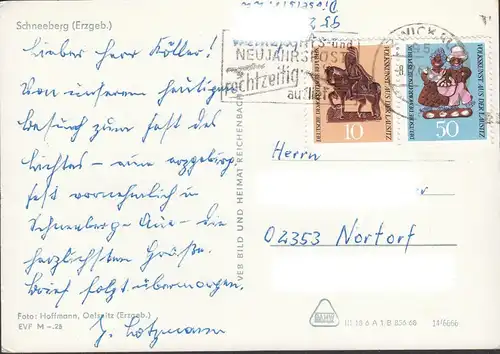 Schneeberg (Erzgeb.)
Lieber Herr Köller!
Von unserem heutigen
Besuch zum Fest des
Lichtes – eine erzgebirg.
Fest vornehmlich in
Schneeberg-Aue – die
herzlichsten Grüße.
Brief folgt übermorgen.
Foto: Hoffmann, Oelsnitz (Erzgeb.)
EVP M –.25
VEB BILD UND HEIMAT REICHENBACH
NEUJAHRSPOST
rechtzeitig
DEUTSCHE DEMOKRATISCHE REPUBLIK
VOLKSKUNST AUS DER LAUSITZ
10
DEUTSCHE DEMOKRATISCHE REPUBLIK
VOLKSKUNST AUS DER LAUSITZ
50
Herrn
02353 Nortorf
III 18 6 A 1 B 856 68 14/6666